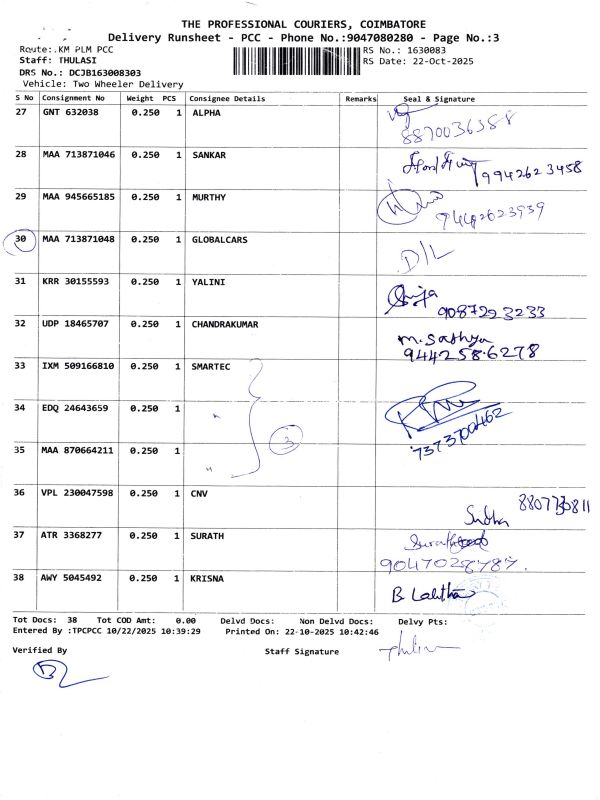 THE PROFESSIONAL COURIERS, COIMBATORE
Delivery Runsheet - PCC - Phone No.:9047080280 - Page No.:3
Route:.KM PLM PCC RS No.: 1630083
Staff: THULASI RS Date: 22-Oct-2025
DRS No.: DCJB163008303
Vehicle: Two Wheeler Delivery
S No Consignment No Weight PCS Consignee Details Remarks Seal & Signature
27 GNT 632038 0.250 1 ALPHA
8870036358
28 MAA 713871046 0.250 1 SANKAR
9942623458
29 MAA 945665185 0.250 1 MURTHY
9442623939
30 MAA 713871048 0.250 1 GLOBALCARS
D/L
31 KRR 30155593 0.250 1 YALINI
9087293233
32 UDP 18465707 0.250 1 CHANDRAKUMAR
m. Sathya
944258.6278
33 IXM 509166810 0.250 1 SMARTEC
34 EDQ 24643659 0.250 1 "
3
7373700462
35 MAA 870664211 0.250 1 "
36 VPL 230047598 0.250 1 CNV
8807730811
Sudha
37 ATR 3368277 0.250 1 SURATH
9047028787.
38 AWY 5045492 0.250 1 KRISNA
B. Lalitha
Tot Docs: 38 Tot COD Amt: 0.00 Delvd Docs: Non Delvd Docs: Delvy Pts:
Entered By :TPCPCC 10/22/2025 10:39:29 Printed On: 22-10-2025 10:42:46
Verified By Staff Signature